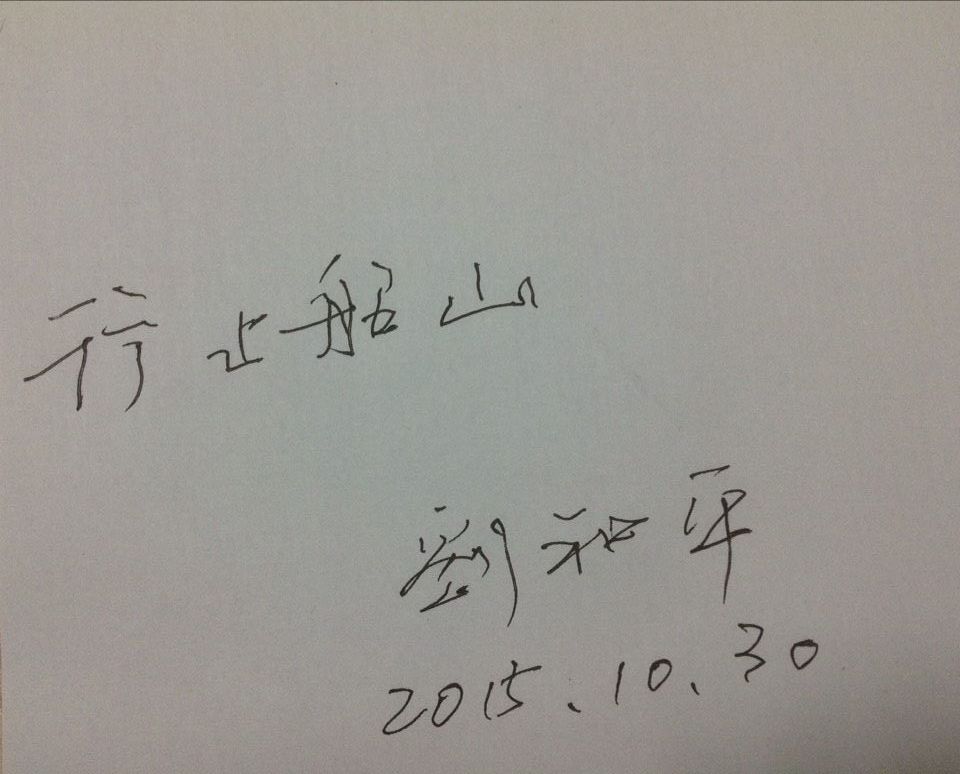 行止船山
劉和平
2015.10.30